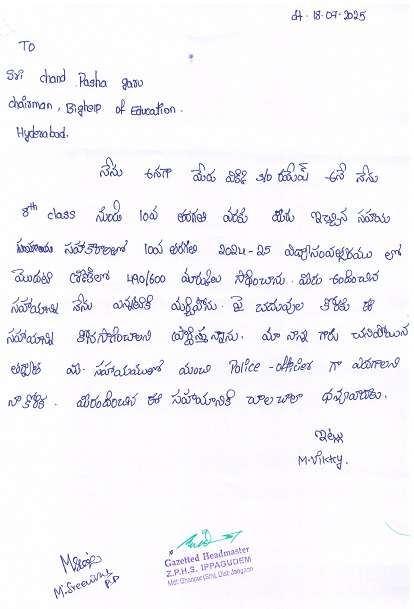 dt. 18-07-2025
To
Sri chand Pasha garu
chairman, Bighelp of Education.
Hyderabad.
నేను అనగా మేరు విక్కీ S/o రమేష్ అనే నేను
8th class నుండి 10వ తరగతి వరకు మీరు ఇచ్చిన సహాయ
సహకారాలతో 10వ తరగతి 2024-25 విద్యాసంవత్సరము లో
మొదటి శ్రేణిలో 490/600 మార్కులు సాధించాను. మీరు అందించిన
సహాయాన్ని నేను ఎన్నటికి మర్చిపోను. పై చదువుల కొరకు ఈ
సహాయాన్ని కొనసాగించాలని ప్రార్థిస్తున్నాను. మా నాన్న గారు చనిపోయిన
తర్వాత మీ సహాయముతో మంచి Police-officer గా ఎదగాలని
నా కోరిక. మీరందించిన ఈ సహాయానికి చాలా చాలా ధన్యవాదాలు.
ఇట్లు
M.Vikky.
M.Sreenivas
P.D
Gazetted Headmaster
Z.P.H.S. IPPAGUDEM
Mdl: Ghanpur(Stn), Dist: Jangaon